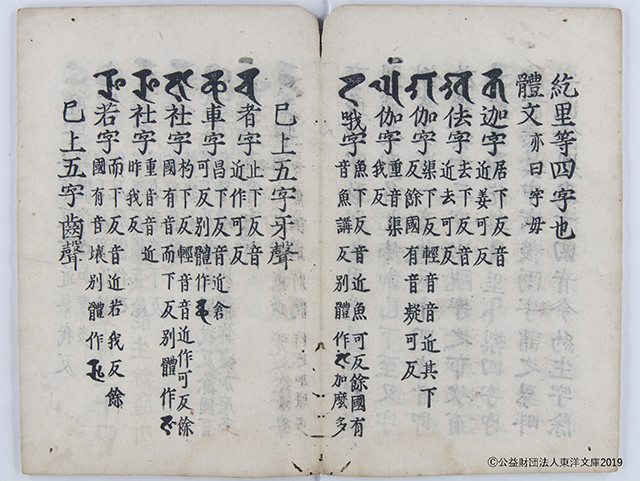 紇里等四字也
體文 亦曰字母
𑖎 迦字 居下反音近姜可反
𑖏 佉字 去下反音近去可反
𑖐 伽字 渠下反輕音音近其下反餘國有音可反
𑖑 伽字 重音渠我反
𑖒 哦字 魚下反音近魚可反餘國有音魚講反別體作𑖒加麼多
巳上五字牙聲
𑖓 者字 止下反音近作可反
𑖔 車字 昌下反音近倉可反別體作𑖔
𑖕 社字 杓下反輕音音近作可反餘國有音而下反別體作𑖕
𑖖 社字 重音音近昨我反
𑖗 若字 而下反音近若我反餘國有音壤別體作𑖗
巳上五字齒聲
©公益財団法人東洋文庫2019